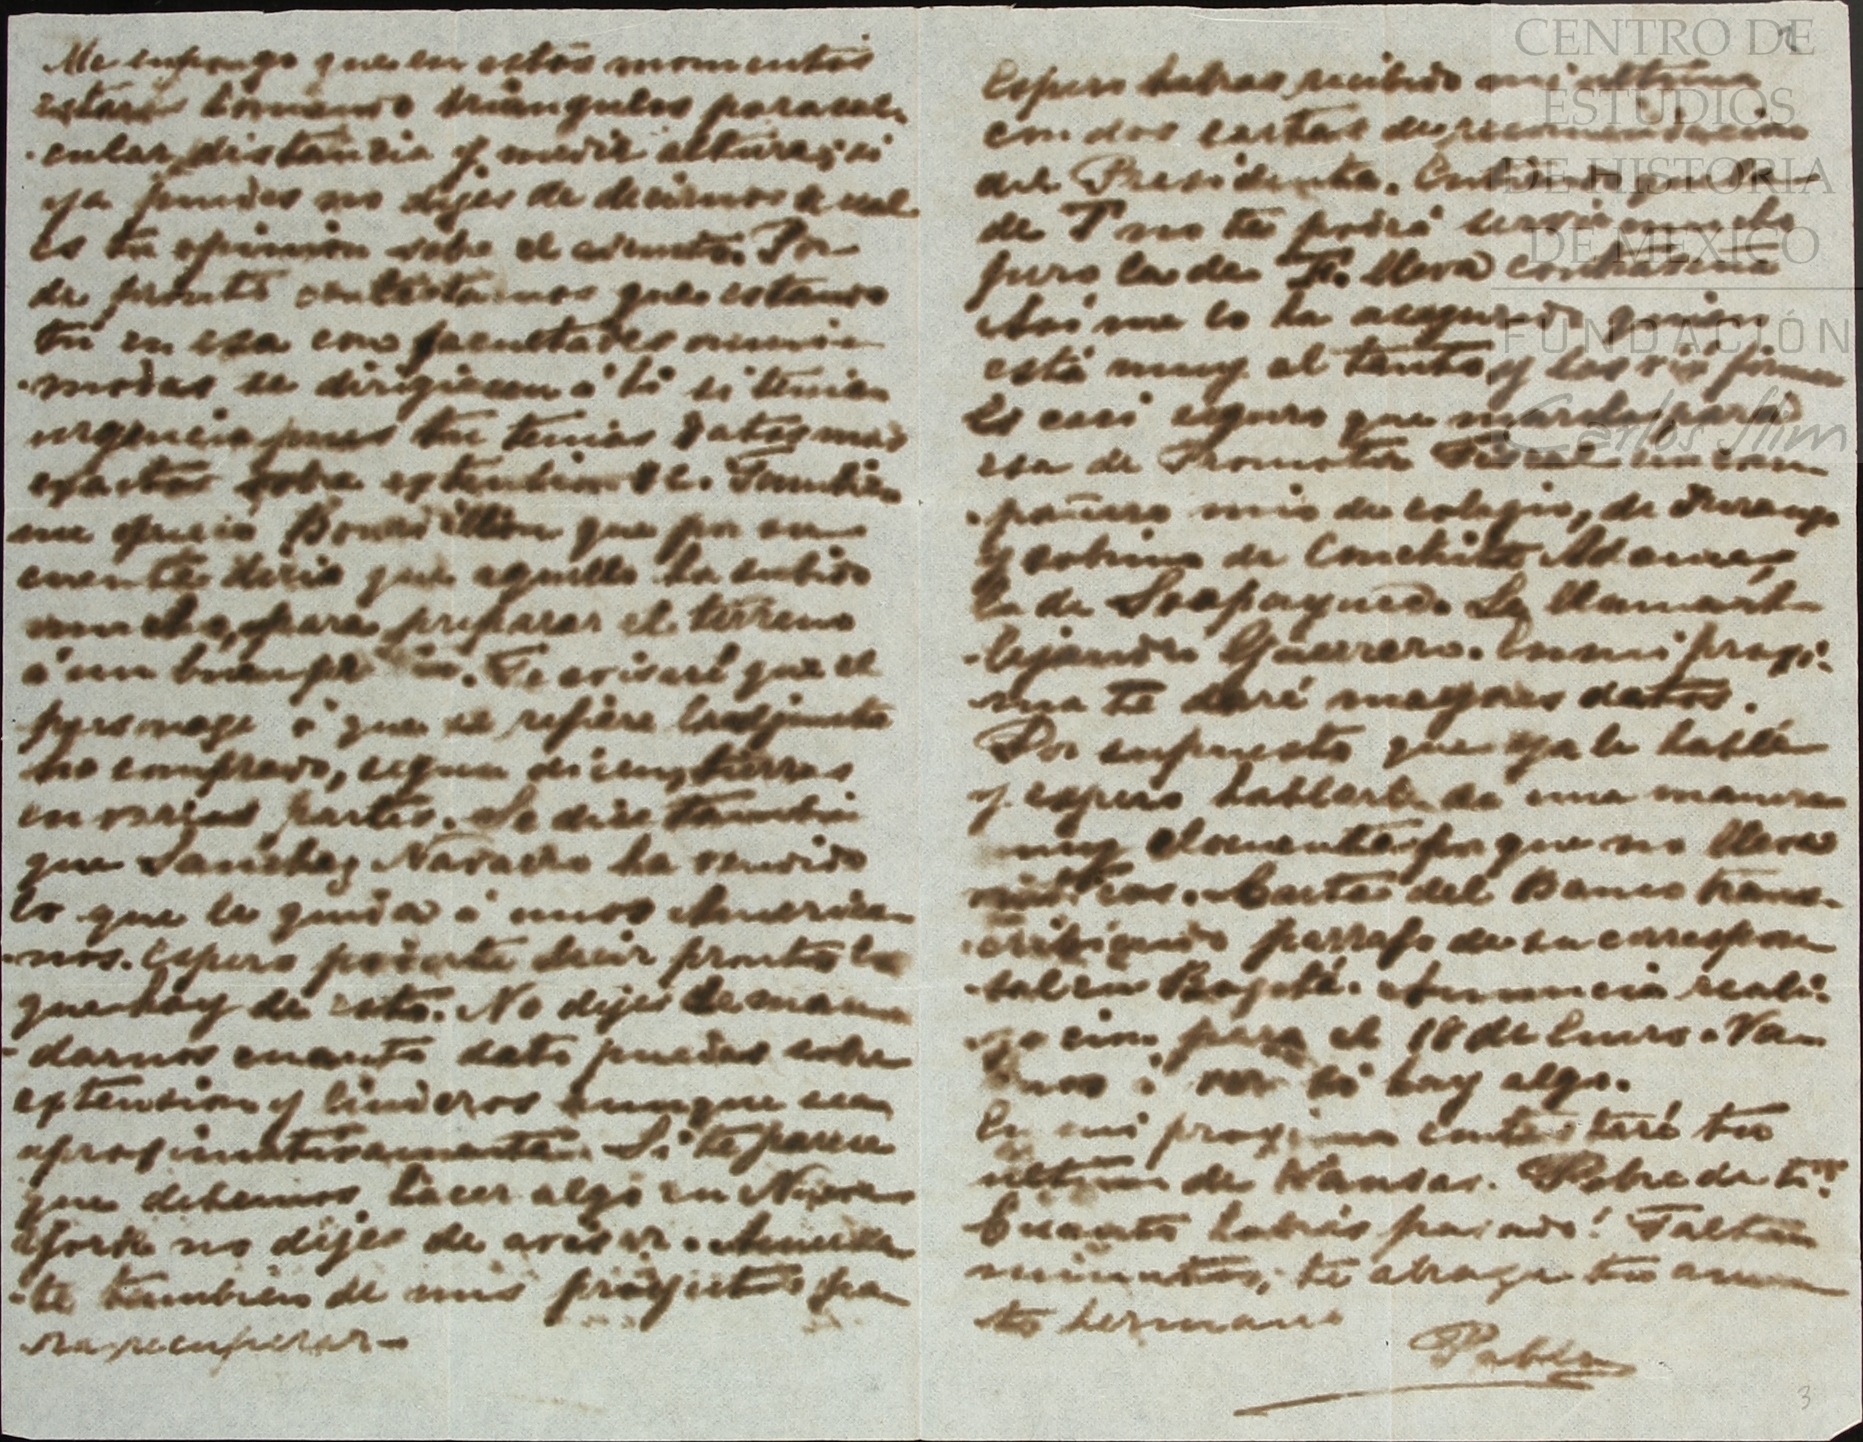 Me supongo que en estos momentos
estarás tomando triangulos para cal-
-cular distancia y medir alturas; si
ya puedes no dejes de decirnos cual
es tu opinion sobre el asunto. Por
de pronto contestamos que estando
tú en esa con facultades omni-
-modas se dirigiesen á ti si tenian
urgencia pues tu tenias datos mas
exactos sobre extension &c. Tambien
me ofrecio que por su
cuenta diria que aquello ha subido
mucho, para preparar el terreno
á un buen. Te avisaré que el
personage á que se refiere la adjunta
ha comprado, segun dicen, tierras
en varias partes. Se dice tambien
que Sanchez Navarro ha vendido
lo que le queda á unos America-
-nos. Espero poderte decir pronto lo
que hay de esto. No dejes de man-
-darnos cuanto dato puedas sobre
extension y linderos aunque sea
aproximativamente. Si te parece
que debemos hacer algo en Nueva
York no dejes de avisar. Acuerda
-te tambien de mis proyectos pa-
-ra recuperar.
2
Espero habras recibido mi ultima
con dos cartas de recomendacion
del Presidente. Entiendo que la
de T no te podrá servir mucho
pero la de F. lleva contraseña
Asi me lo ha asegurado quien
está muy al tanto y las vió firmar
Es casi seguro que marche para
esa de Promotor Fiscal un com-
-pañero mio de colegio, de Durango
y sobrino de Conchita Adame,
la de. Se llama A-
-lejandro Guerrero. En mi proxi-
-ma te daré mayores datos.
Por supuesto que ya le hablé
y espero hablarle de una manera
muy elocuente porque no lleva
. Carta del Banco trans-
-cribiendo parrafo de su correspon
-sal en Bogotá. Anuncia reali-
zacion para el 18 de Enero. Va-
mos á ver si hay algo.
En mi proxima contestaré tu
ultima de Kansas. Pobre de ti!
Cuanto habrás pasado! Faltan
minutos, te abraza tu aman-
te hermano
Pablo
3
CENTRO DE
ESTUDIOS
DE HISTORIA
DE MÉXICO
FUNDACIÓN
Carlos Slim